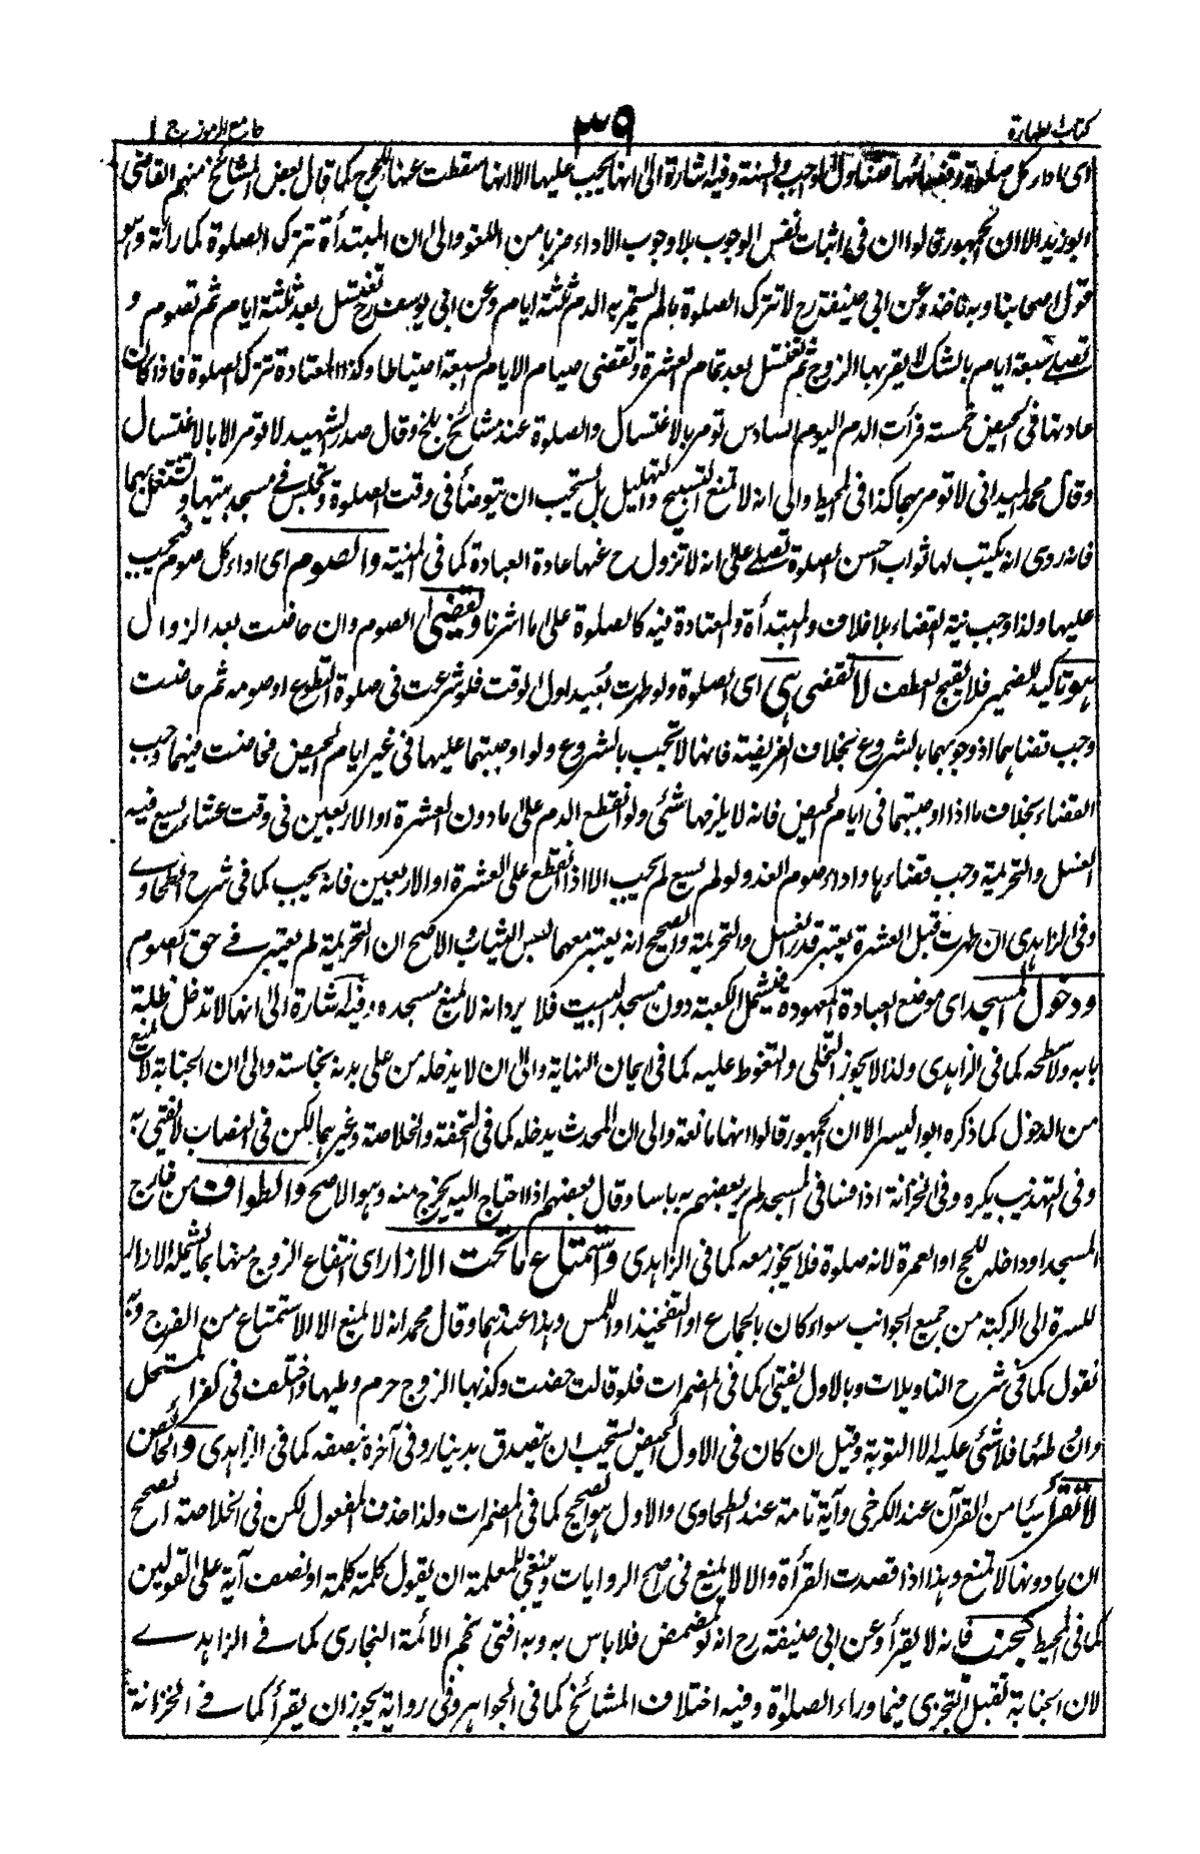 كتاب الطهارة
٣٩
جامع الرموز ج ١
اى اداء كل صلوة وقضائها فتناول الواجب والسنة وفيه اشارة الى انها تجب عليها الا انها سقطت عنها للحرج كما قال بعض المشائخ منهم القاضى
ابو زيد الا ان الجمهور قالوا ان فى اثبات نفس الوجوب بلا وجوب الاداء ضربا من اللغو والى ان المبتدأة تترك الصلوة كما رأته وهو
قول اصحابنا وبه ناخذ وعن ابى حنيفة رح لا تترك الصلوة ما لم يستمر به الدم ثلثة ايام وعن ابى يوسف رح تغتسل بعد ثلثة ايام ثم تصوم و
تصلى سبعة ايام بالشك لا يقربها الزوج ثم تغتسل بعد تمام العشرة وتقضى صيام الايام السبعة احتياطا وكذا المعتادة تترك الصلوة فاذا كان
عادتها فى الحيض خمسة فرأت الدم اليوم السادس تومر بالاغتسال والصلوة عند مشائخ بلخ وقال صدر الشهيد لا تومر الا بالاغتسال
وقال محمد الميدانى لا تومر بهما كذا فى المحيط والى انه لا تمنع التسبيح والتهليل بل يستحب ان تتوضأ فى وقت الصلوة وتجلس فى مسجد بيتها وتشتغل بهما
فانه روى انه يكتب لها ثواب احسن الصلوة تصلى على انه لا تزول ح عنها عادة العبادة كما فى المنية والصوم اى اداء كل صوم فيجب
عليها ولذا وجب نية القضاء بلا خلاف والمبتدأة والمعتادة فيه كالصلوة على ما اشرنا وتقضى الصوم وان حاضت بعد الزوال
هو تاكيد للضمير فلا يقبح العطف لا تقضى هى اى الصلوة ولو طهرت بعيد اول الوقت فلو شرعت فى صلوة التطوع او صومه ثم حاضت
وجب قضاهما اذ وجوبهما بالشروع بخلاف الفريضة فانها لا تجب بالشروع ولو اوجبتهما عليها فى غير ايام الحيض فحاضت فيهما وجب
القضاء بخلاف ما اذا اوجبتهما فى ايام الحيض فانه لا يلزمها شئ ولو انقطع الدم على ما دون العشرة او الاربعين فى وقت عشاء يسع فيه
الغسل والتحريمة وجب قضاءها واداء صوم الغد ولو لم يسع لم يجب الا اذا انقطع على العشرة او الاربعين فانه يجب كما فى شرح الطحاوى
وفى الزاهدى ان طهرت قبل العشرة يعتبر قدر الغسل والتحريمة والصحيح انه يعتبر معهما لبس الثياب والاصح ان التحريمة لم يعتبر فى حق الصوم
ودخول المسجد اى موضع العبادة المعهودة فيشمل الكعبة دون مسجد البيت فلا يرد انه لا يمنع مسجده وفيه اشارة الى انها لا تدخل ظلة
بابه ولا سطحه كما فى الزاهدى ولذا لا يجوز التخلى والتغوط عليه كما فى ايمان النهاية والى ان لا يدخله من على بدنه نجاسة والى ان الجنابة لا تمنع
من الدخول كما ذكره ابو اليسر الا ان الجمهور قالوا انها مانعة والى ان المحدث يدخله كما فى التحفة والخلاصة وغيرهما لكن فى النصاب لا يفتى به
وفى التهذيب يكره وفى الخزانة اذا فسا فى المسجد لم ير بعضهم به باسا وقال بعضهم اذا احتاج اليه يخرج منه وهو الاصح والطواف من خارج
المسجد او داخله للحج او العمرة لانه صلوة فلا يجوز معه كما فى الزاهدى واستمتاع ما تحت الازار اى انتفاع الزوج منها بما يشمله الازار
للسرة الى الركبة من جميع الجوانب سواء كان بالجماع او التفخيذ او اللمس وهذا عندهما وقال محمد انه لا يمنع الا الاستمتاع من الفرج وبه
نقول كما فى شرح التاويلات وبالاول يفتى كما فى المضمرات فلو قالت حضت وكذبها الزوج حرم وطيها واختلف فى كفر المستحل
وان وطئها فلا شئ عليه الا التوبة وقيل ان كان فى الاول الحيض يستحب ان يتصدق بدينار وفى آخره بنصفه كما فى الزاهدى والحائض
لا تقرأ شيا من القرآن عند الكرخى وآية تامة عند الطحاوى والاول هو الصحيح كما فى المضمرات ولذا حذف المفعول لكن فى الخلاصة الصحيح
ان ما دونها لا تمنع وهذا اذا قصدت القرأة والا لا يمنع فى اصح الروايات وينبغى للمعلمة ان يقول كلمة كلمة او نصف آية على القولين
كما فى المحيط كجنب فانه لا يقرأ وعن ابى حنيفة رح انه لو تمضمض فلا باس به وبه افتى نجم الائمة البخارى كما فى الزاهدى
لان الجنابة تقبل التجزى فيما وراء الصلوة وفيه اختلاف المشائخ كما فى الجواهر وفى رواية يجوز ان يقرأ كما فى الخزانة